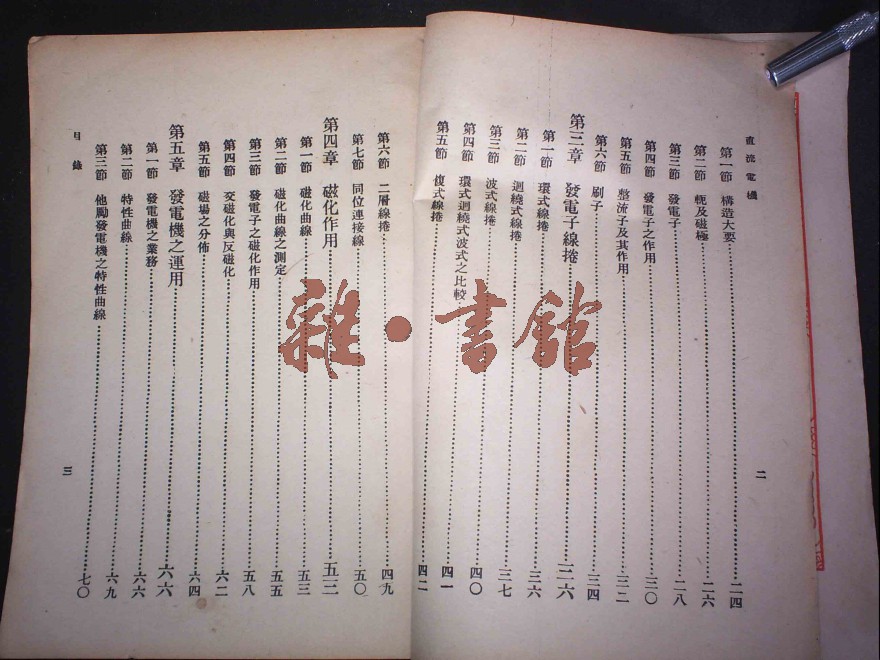 直流電機 二
第一節 構造大要……二四
第二節 軛及磁極……二六
第三節 發電子……二八
第四節 發電子之作用……三〇
第五節 整流子及其作用……三二
第六節 刷子……三四
第三章 發電子線捲……三六
第一節 環式線捲……三六
第二節 迴繞式線捲……三七
第三節 波式線捲……四〇
第四節 環式迴繞式波式之比較……四一
第五節 複式線捲……四二
第六節 二層線捲……四九
第七節 同位連接線……五〇
第四章 磁化作用……五三
第一節 磁化曲線……五三
第二節 磁化曲線之測定……五五
第三節 發電子之磁化作用……五八
第四節 交磁化與反磁化……六二
第五節 磁場之分佈……六四
第五章 發電機之運用……六六
第一節 發電機之業務……六六
第二節 特性曲線……六九
第三節 他勵發電機之特性曲線……七〇
目錄 三
雜·書館